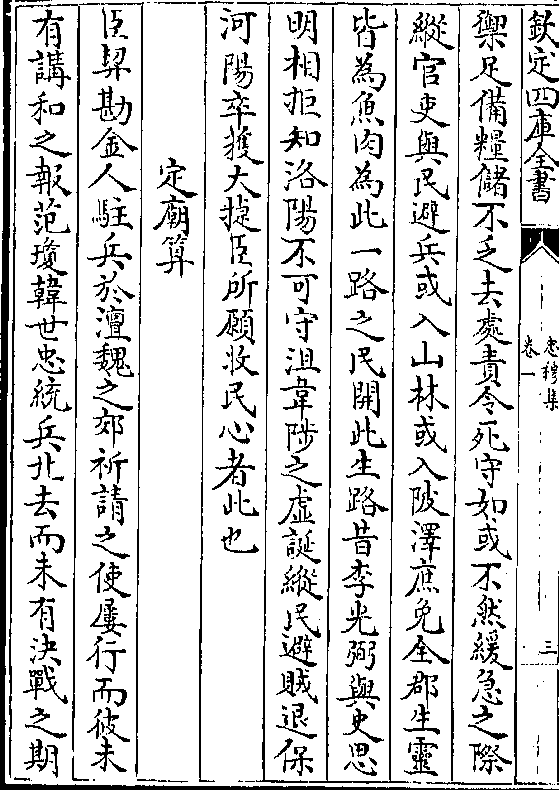 欽定四庫全書
忠穆集
卷一
三
禦足備糧儲不乏去處責令死守如或不然緩急之際
縱官吏與民避兵或入山林或入陂澤庶免全郡生靈
皆為魚肉為此一路之民開此生路昔李光弼與史思
明相拒知洛陽不可守沮韋陟之虛誕縱民避賊退保
河陽卒獲大捷臣所願收民心者此也
定廟算
臣契勘金人駐兵於澶魏之郊祈請之使屢行而彼未
有講和之報范瓊韓世忠統兵北去而未有決戰之期